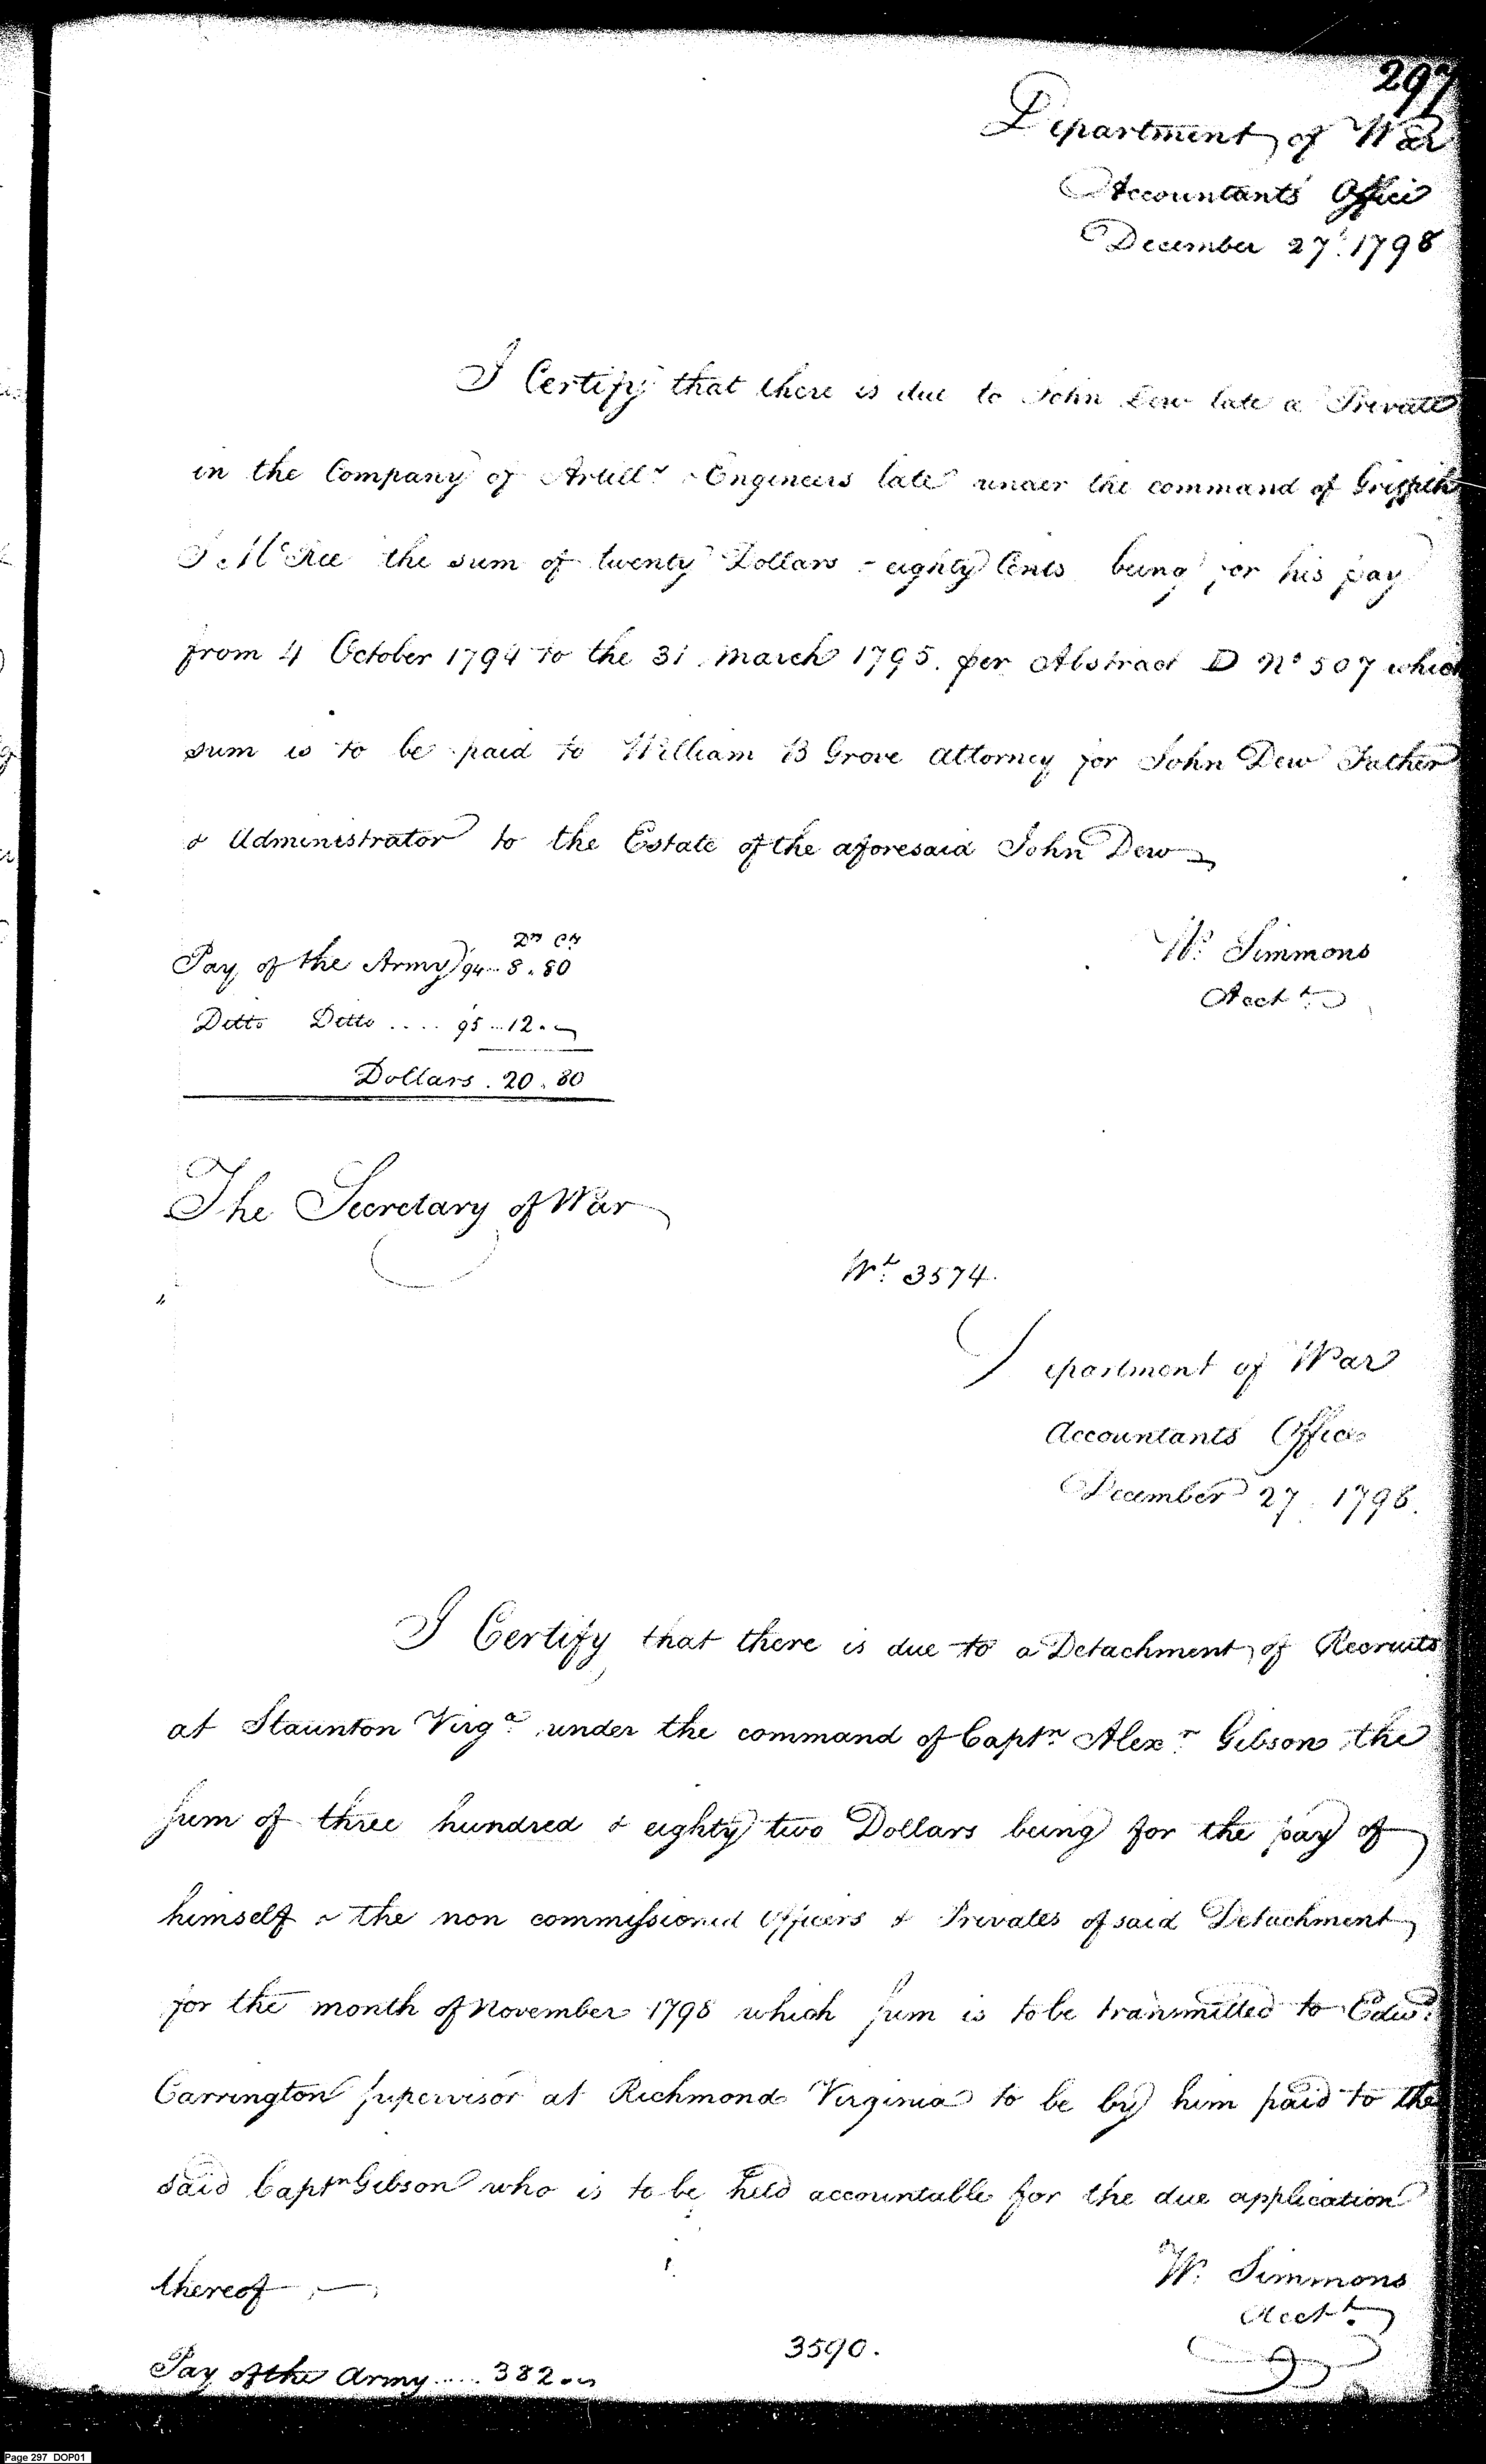 297
Department of War
Accountants Office
December 27. 1798
I Certify that there is due to John Dew late a Private
in the Company of Artilly & Engineers late under the command of Griffith
J McRee the sum of twenty Dollars & eighty Cents being for his pay
from 4 October 1794 to the 31 March 1795. per Abstract D No 507 which
sum is to be paid to William B Grove attorney for John Dew Father
& Administrator to the Estate of the aforesaid John Dew
Ds Cts
Pay of the Army 94 .. 8.80
Ditto Ditto .... 95 ... 12.
Dollars . 20.80
W. Simmons
Acctt.
The Secretary of War
Wt. 3574.
Department of War
Accountants Office
December 27. 1798.
I Certify that there is due to a Detachment of Recruits
at Staunton Virga. under the command of Captn. Alexr. Gibson the
sum of three hundred & eighty two Dollars being for the pay of
himself & the non commissioned Officers & Privates of said Detachment
for the month of November 1798 which sum is to be transmitted to Edwd.
Carrington supervisor at Richmond Virginia to be by him paid to the
said Captn Gibson who is to be held accountable for the due application
thereof
W. Simmons
Acctt.
3590.
Pay of the Army ..... 382.
Page 297 DOP01